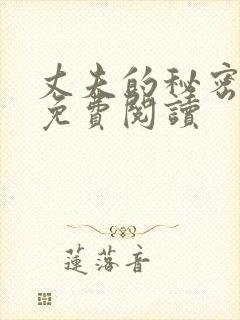 丈夫的秘密
免費閱讀
蓮落音